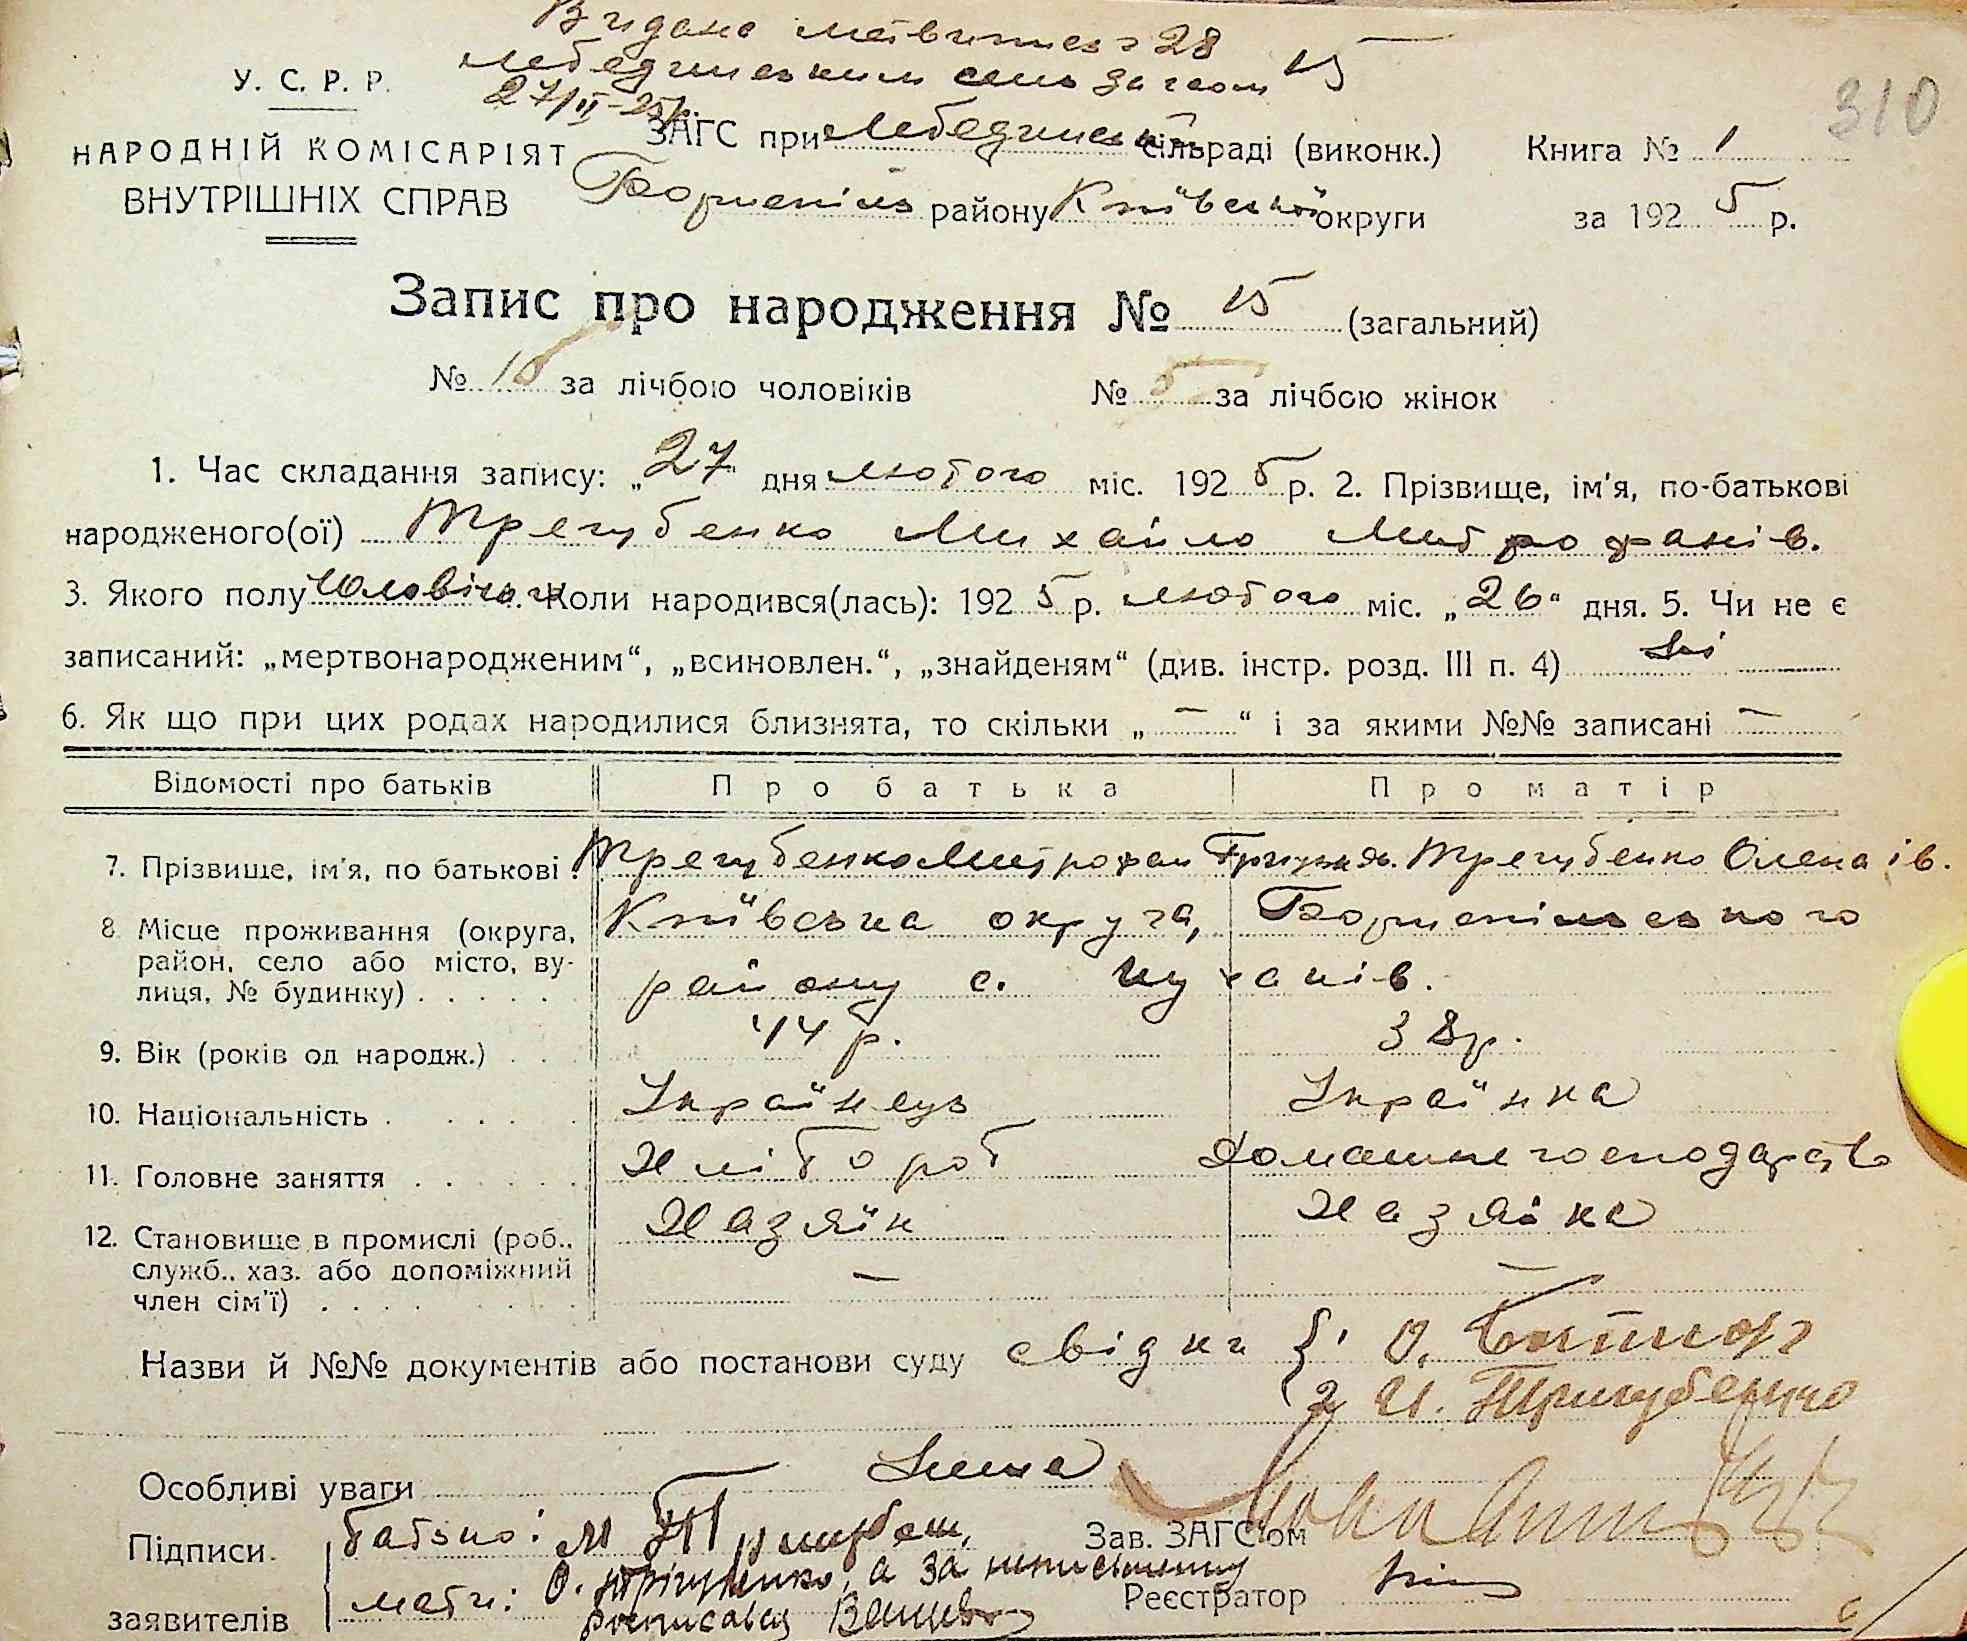 Видано метвитись з 28
Лебединським сель загсом 15
27/II-25р.
310
У. С. Р. Р.
НАРОДНІЙ КОМІСАРІЯТ
ВНУТРІШНІХ СПРАВ
ЗАГС при Лебединській сільраді (виконк.)
Бориспіль району Київської округи
Книга № 1
за 192 5 р.
Запис про народження № 15 (загальний)
№ 10 за лічбою чоловіків № 5 за лічбою жінок
1. Час складання запису: „27" дня лютого міс. 192 5 р. 2. Прізвище, ім'я, по-батькові
народженого(ої) Трегубенко Михайло Митрофанів.
3. Якого полу Чоловічого Коли народився(лась): 192 5 р. лютого міс. „26" дня. 5. Чи не є
записаний: „мертвонародженим", „всиновлен.", „знайденям" (див. інстр. розд. III п. 4) Ні
6. Як що при цих родах народилися близнята, то скільки „ — " і за якими №№ записані —
Відомості про батьків Про батька Про матір
7. Прізвище, ім'я, по батькові Трегубенко Митрофан Трегубенко Олена ів.
8 Місце проживання (округа, район, село або місто, вулиця, № будинку) Київська округа, Бориспільського
району с.
9. Вік (років од народж.) 44 р. 38р.
10. Національність Українець Українка
11. Головне заняття Хлібороб Домашнє господарство
12. Становище в промислі (роб., служб., хаз. або допоміжний член сім'ї) Хазяїн Хазяйка
— —
Назви й №№ документів або постанови суду свідки { 1 О.
2 И. Тригубенко
Особливі уваги Нема
Підписи заявителів Батько: М Тригубен,
мати: О. а за неписьменну
росписався
Зав. ЗАГС'ом
Реєстратор